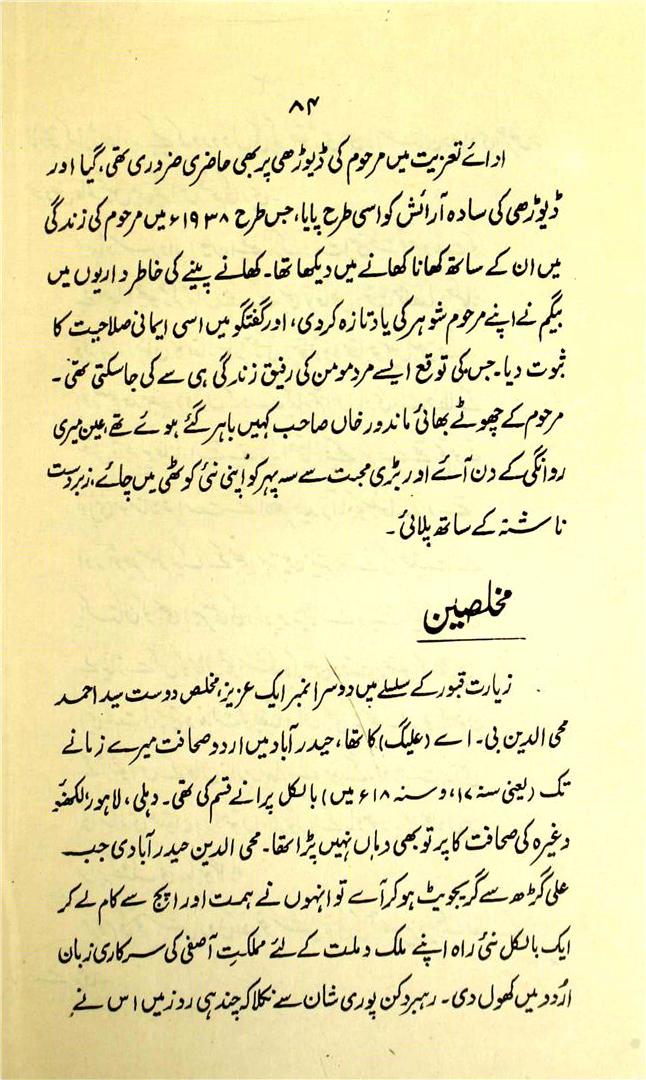 ۸۴
ادائے تعزیت میں مرحوم کی ڈیوڑھی پر بھی حاضری ضروری تھی، گیا اور
ڈیوڑھی کی سادہ آرائش کو اسی طرح پایا، جس طرح ۱۹۳۸ء میں مرحوم کی زندگی
میں ان کے ساتھ کھانا کھانے میں دیکھا تھا۔ کھانے پینے کی خاطر داریوں میں
بیگم نے اپنے مرحوم شوہر کی یاد تازہ کردی، اور گفتگو میں اسی ایمانی صلاحیت کا
ثبوت دیا۔ جس کی توقع ایسے مرد مومن کی رفیق زندگی ہی سے کی جاسکتی تھی۔
مرحوم کے چھوٹے بھائی ماندور خاں صاحب کہیں باہر گئے ہوئے تھے، عین میری
روانگی کے دن آئے اور بڑی محبت سے سہ پہر کو اپنی نئی کوٹھی میں چائے، زبردست
ناشتہ کے ساتھ پلائی۔
مخلصین
زیارت قبور کے سلسلے میں دوسرا نمبر ایک عزیز، مخلص دوست سید احمد
محی الدین بی۔ اے (علیگ) کا تھا، حیدرآباد میں اردو صحافت میرے زمانے
تک (یعنی سنہ ۱۷، و سنہ ۱۸ء میں) بالکل پرانے قسم کی تھی۔ دہلی، لاہور، لکھنؤ
وغیرہ کی صحافت کا پرتو بھی وہاں نہیں پڑا تھا۔ محی الدین حیدرآبادی جب
علی گڑھ سے گریجویٹ ہوکر آے تو انہوں نے ہمت اور اپچ سے کام لے کر
ایک بالکل نئی راہ اپنے ملک و ملت کے لئے مملکت آصفی کی سرکاری زبان
اُردو میں کھول دی۔ رہبر دکن پوری شان سے نکلا کہ چند ہی روز میں اس نے